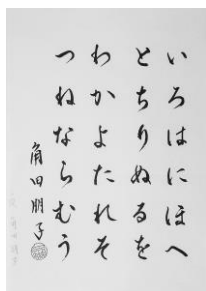 いろはにほへ
とちりぬるを
わかよたれそ
つねならむう
角田朋子